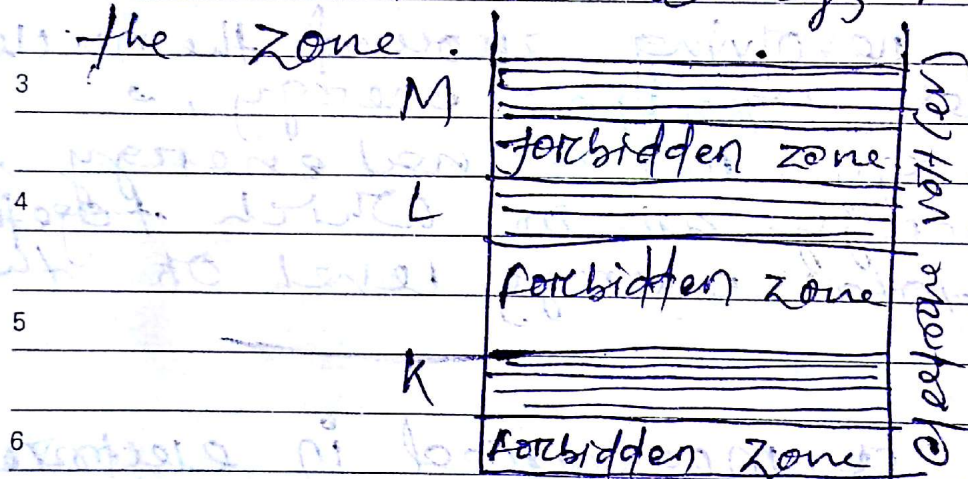 the zone.
3
M
forbidden zone
4
L
forbidden zone
5
K
6
forbidden zone
electrone volt (ev)